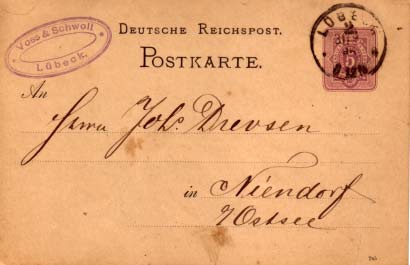 Voss & Schwoll
Lübeck.
DEUTSCHE REICHSPOST.
POSTKARTE.
LÜBECK
5
An
Herrn Johs Drevsen
in Niendorf
Ostsee